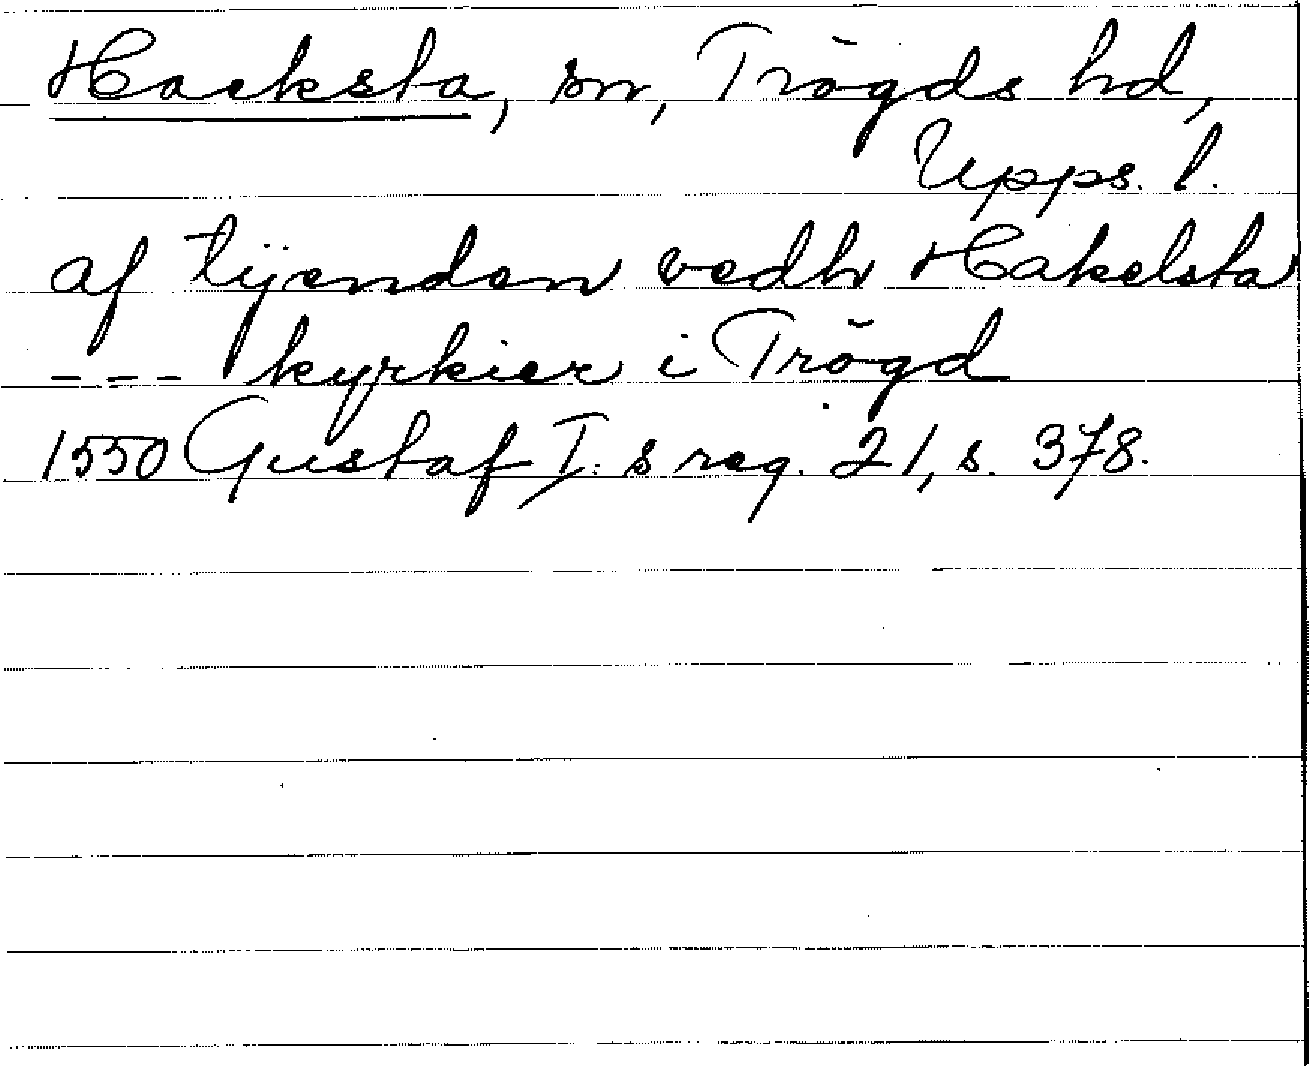 Hacksta, sn, Trögds hd,
Upps. l.
af tijenden vedh Hakelsta
--- kyrkier i Trögd
1550 Gustaf I:s reg. 21, s. 378.